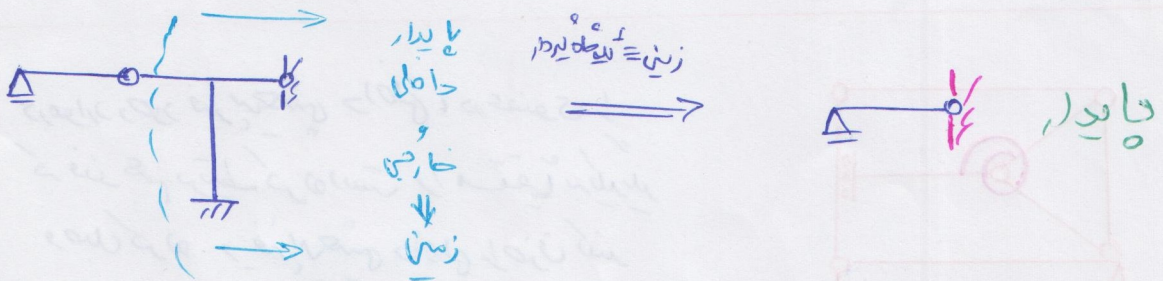 پایدار
داخلی
و
خارجی
⇓
زمین
زمین ≡ تکیه‌گاه
پایدار